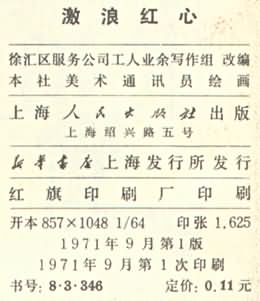 激浪红心
徐汇区服务公司工人业余写作组 改编
本社美术通讯员绘画
上海人民出版社出版
上海绍兴路五号
新华书店上海发行所发行
红旗印刷厂印刷
开本 857×1048 1/64 印张 1.625
1971年9月第1版
1971年9月第1次印刷
书号: 8·3·346 定价: 0.11元